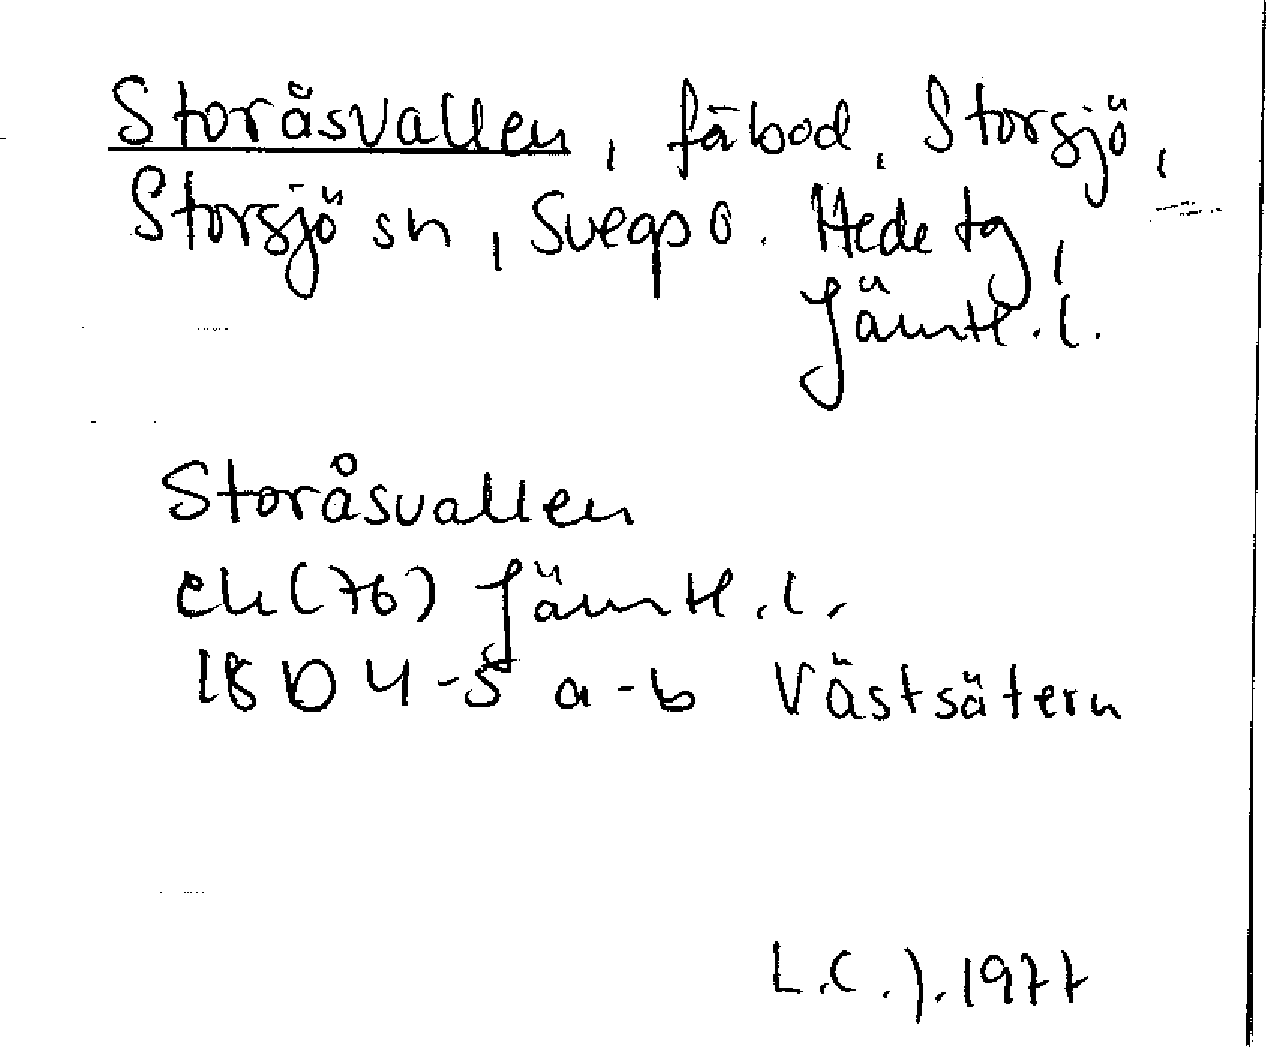 Storåsvallen, fäbod, Storsjö,
Storsjö sn, Svegs po. Hede tg,
Jämtl.l.
Storåsvallen
ek (76) Jämtl.l.
18 D 4-5 a-b Västsätern
L.C.J. 1977